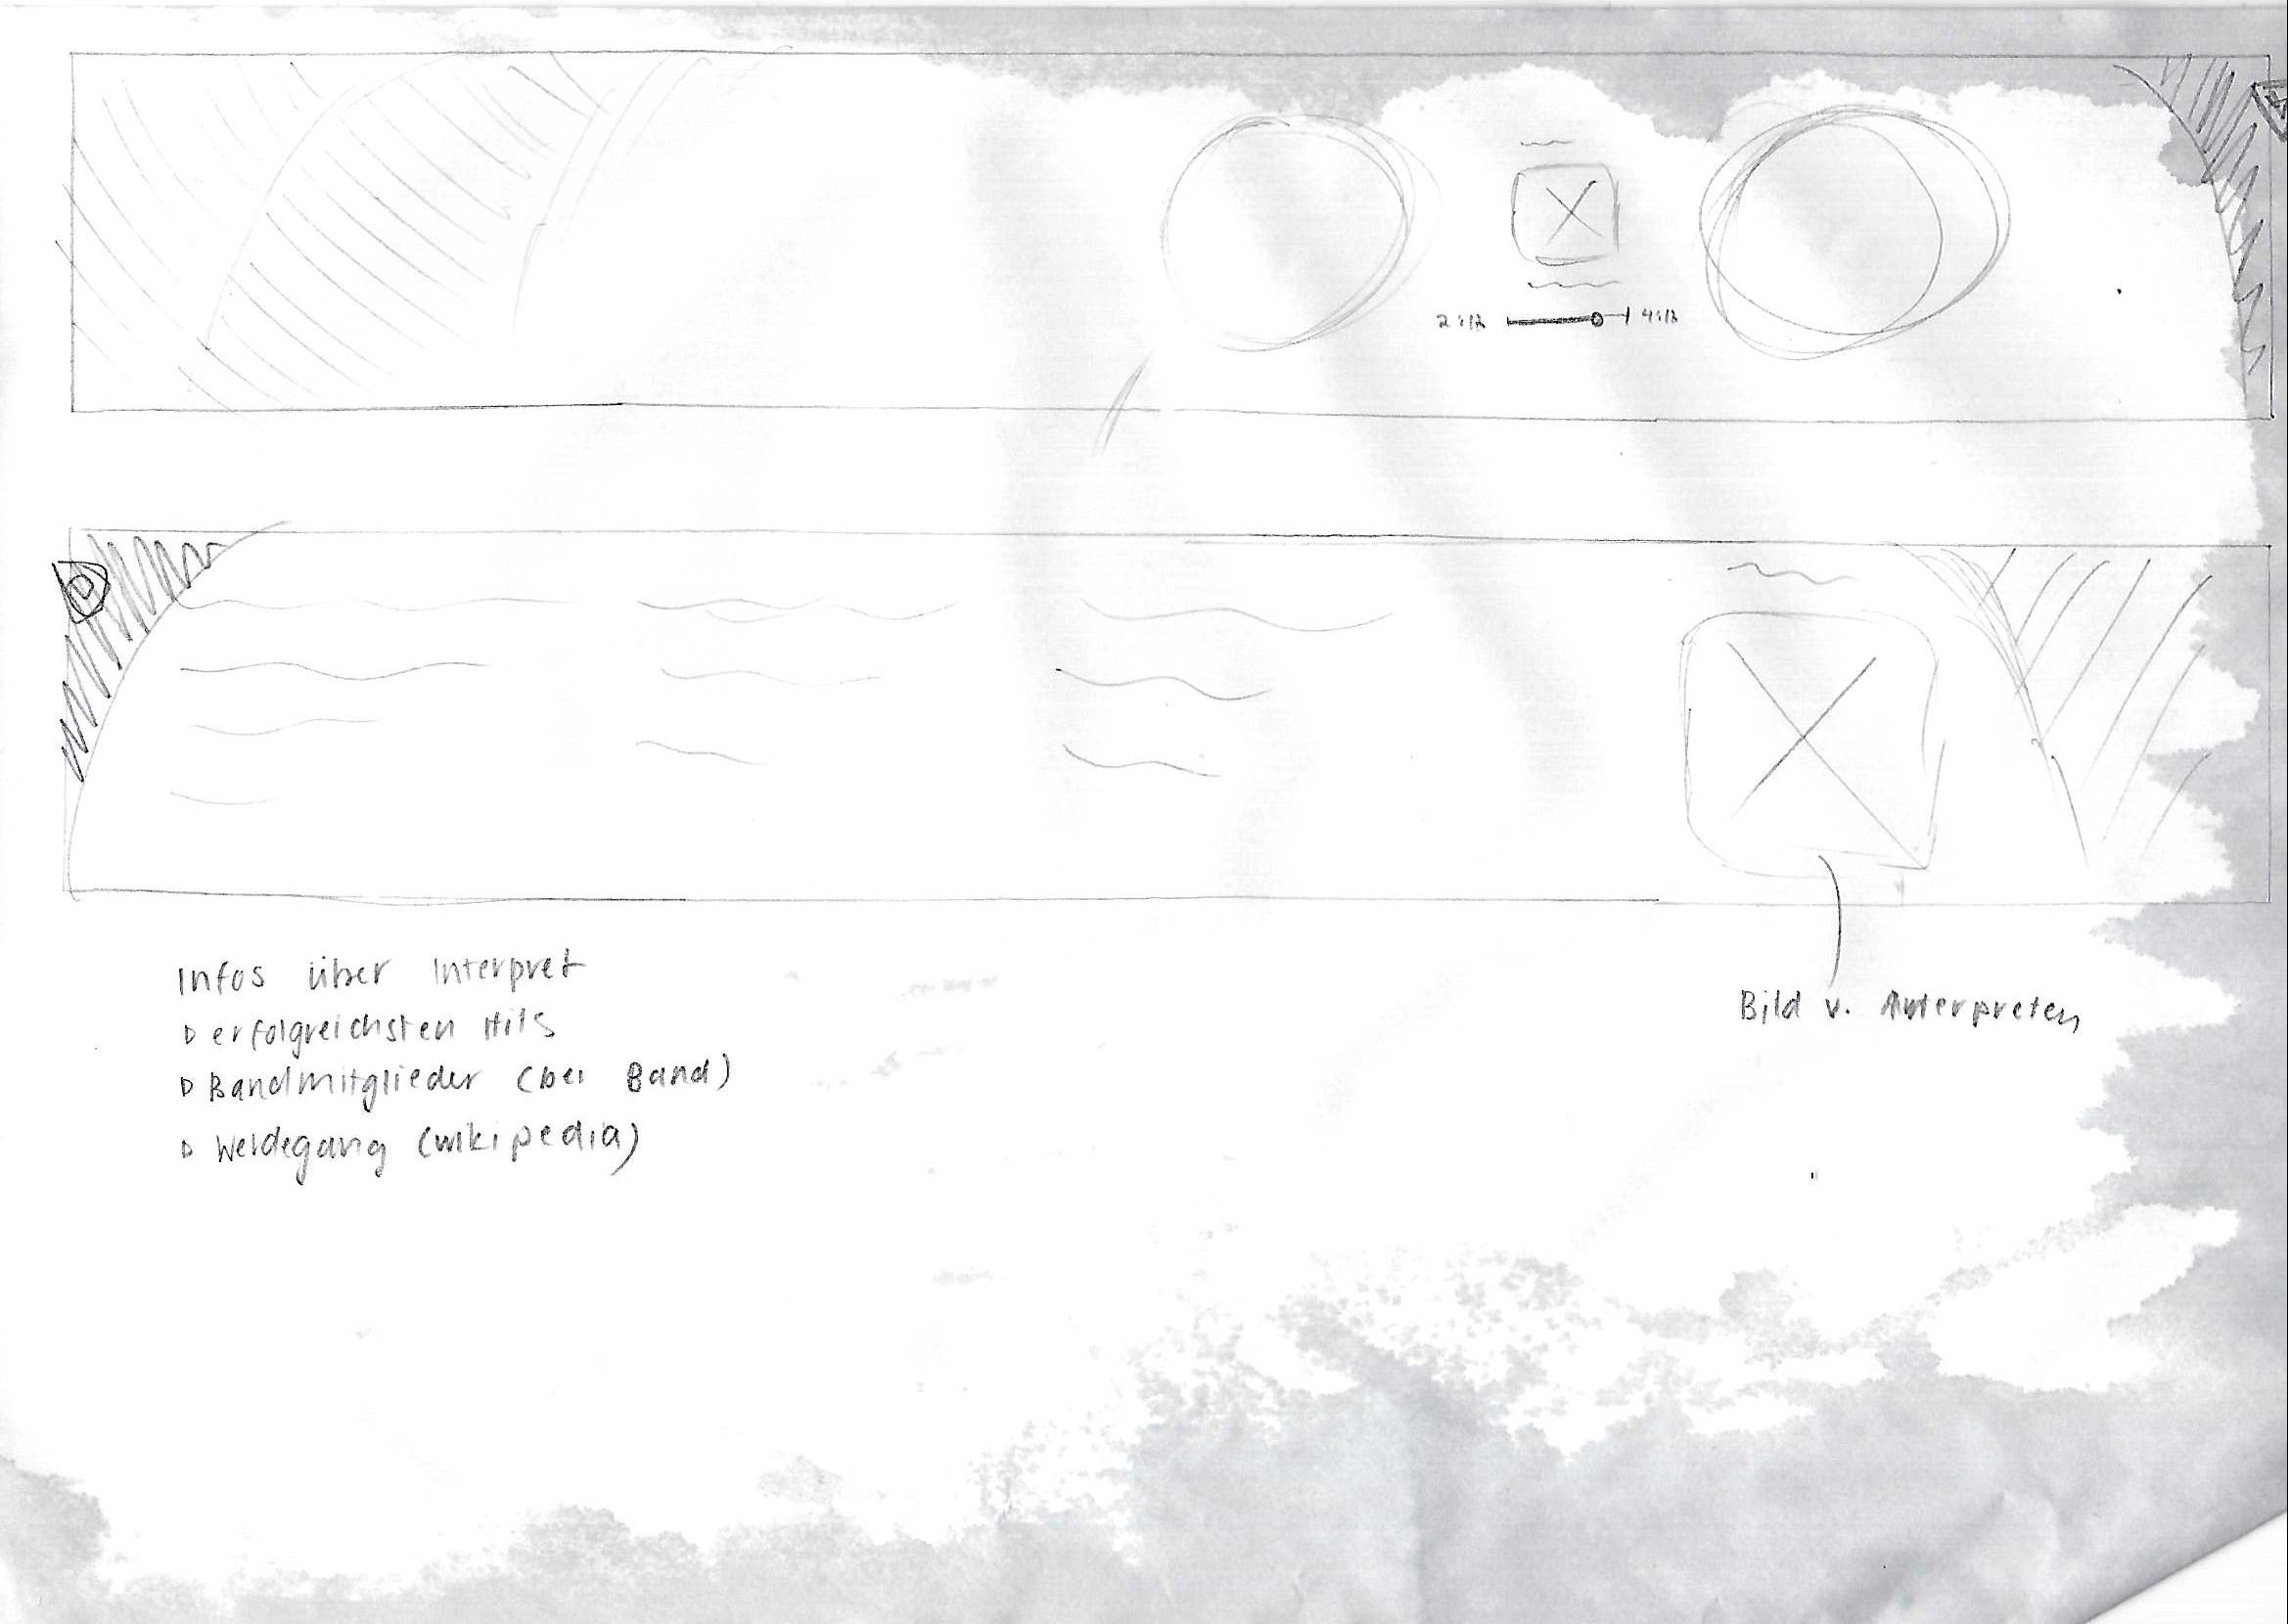 Infos über Interpret
▷ erfolgreichsten Hits
▷ Bandmitglieder (bei Band)
▷ Werdegang (wikipedia)
Bild v. Interpreten